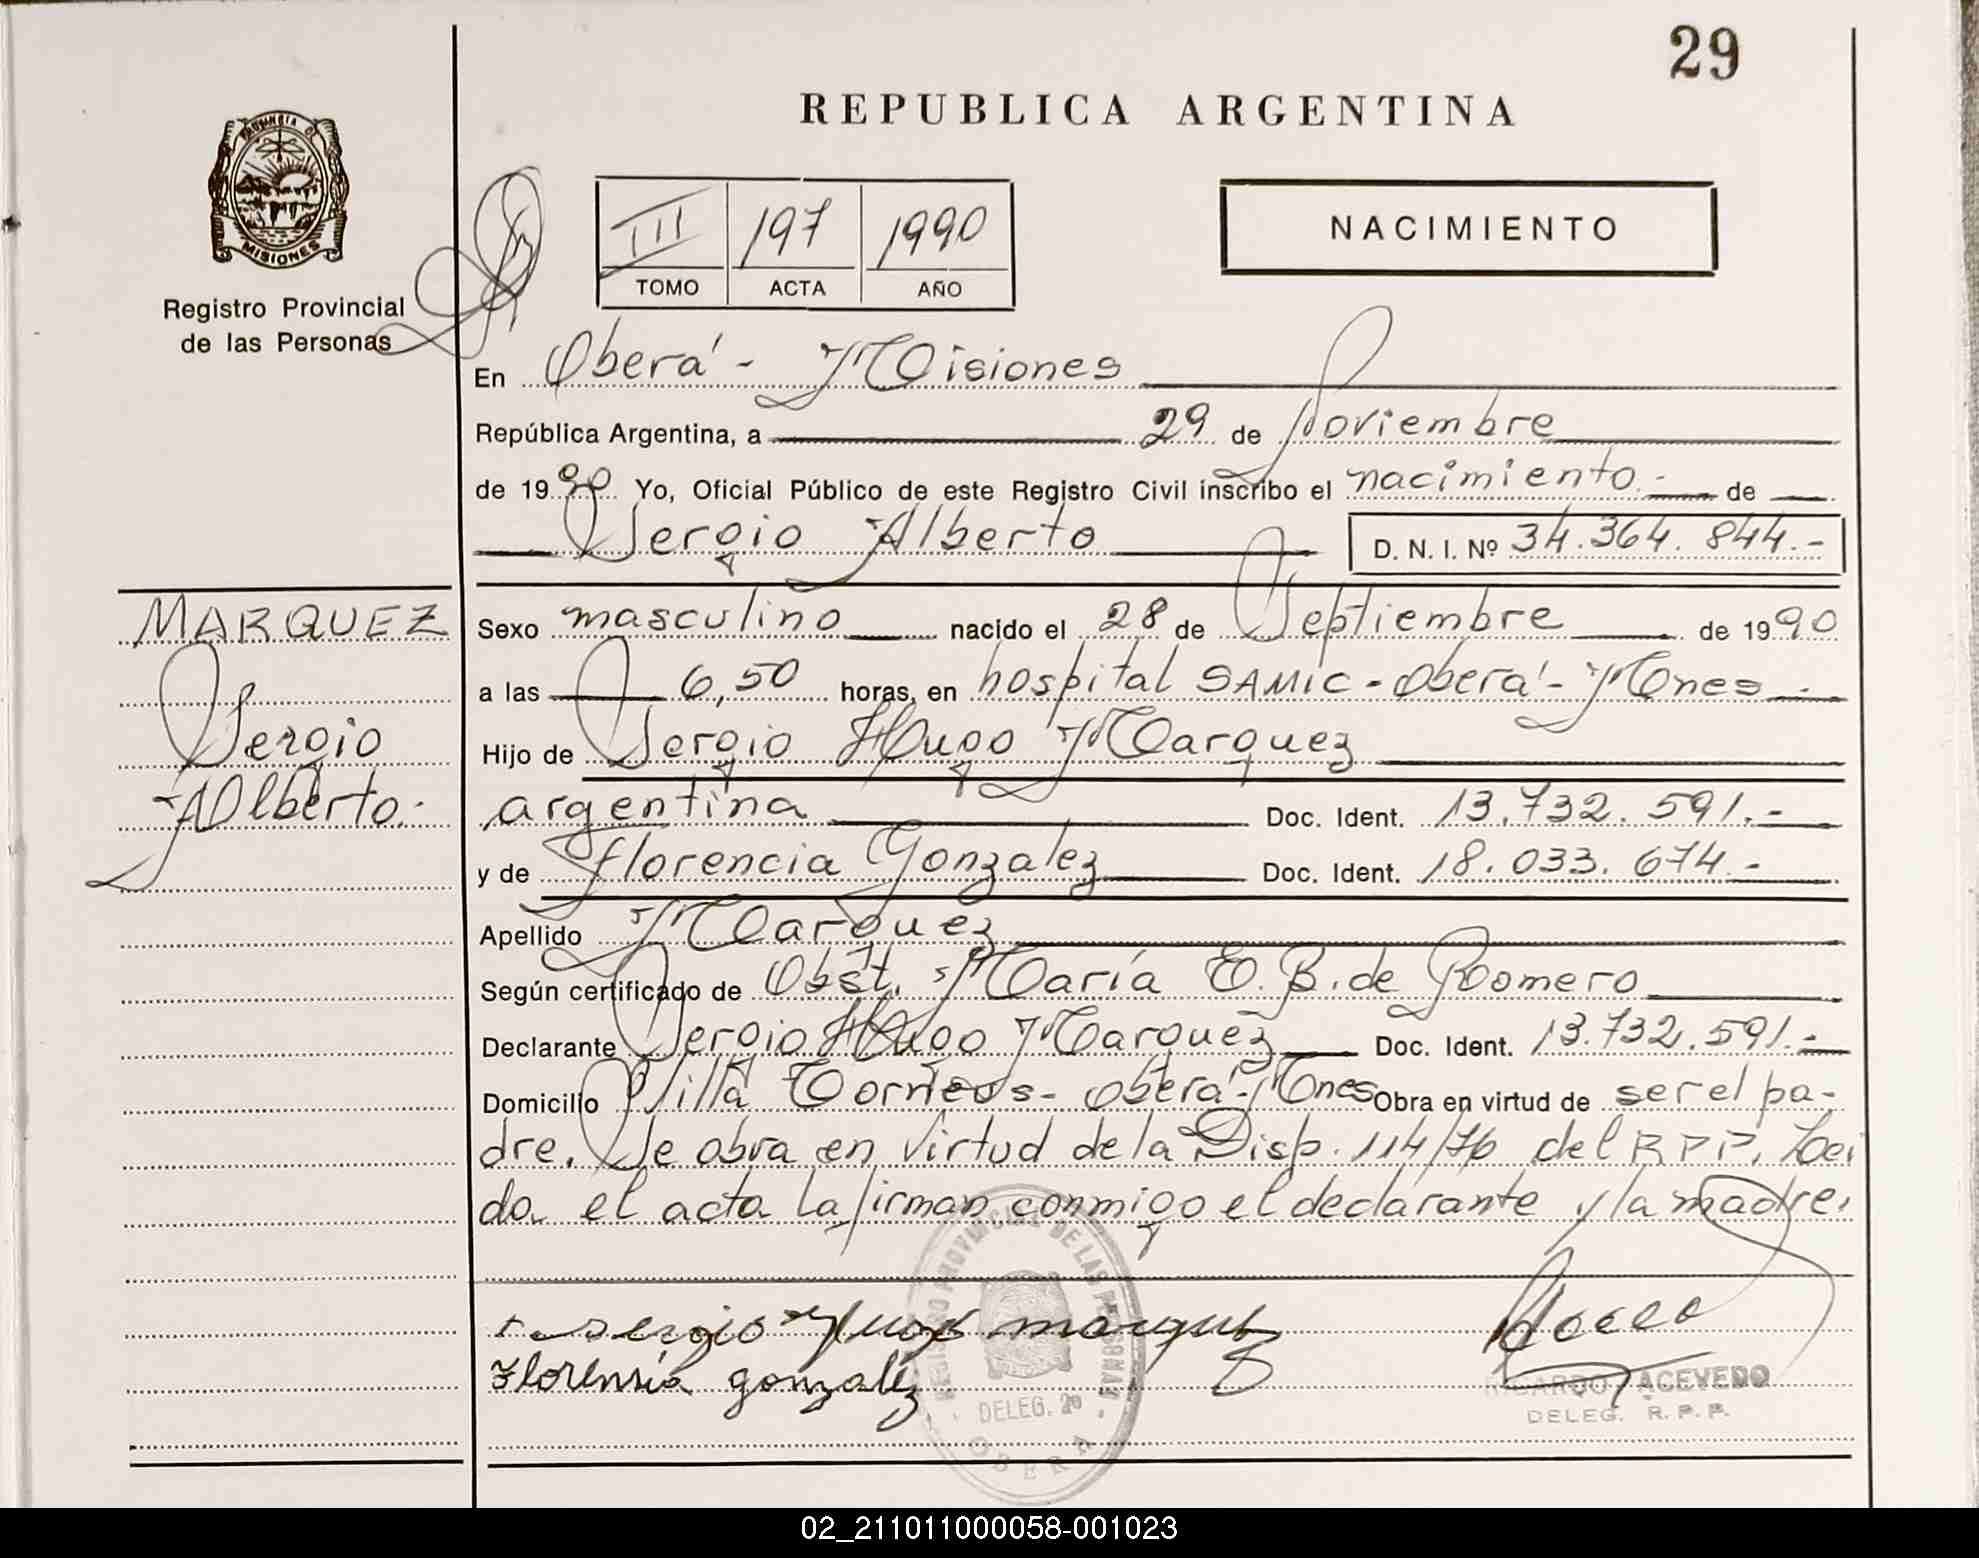 29
REPUBLICA ARGENTINA
PROVINCIA DE
MISIONES
Registro Provincial
de las Personas
III 197 1990
TOMO ACTA AÑO
NACIMIENTO
En Oberá - Misiones
República Argentina, a 29 de Noviembre
de 1990 Yo, Oficial Público de este Registro Civil inscribo el nacimiento.- de
Sergio Alberto D. N. I. Nº 34.364.844.-
MARQUEZ
Sergio
Alberto.-
Sexo masculino nacido el 28 de Septiembre de 1990
a las 6,50 horas, en hospital SAMIC - Oberá - Mnes.-
Hijo de Sergio Hugo Marquez
argentina Doc. Ident. 13.732.591.-
y de Florencia Gonzalez Doc. Ident. 18.033.674.-
Apellido Marquez
Según certificado de Obst. María E. B. de Romero
Declarante Sergio Hugo Marquez Doc. Ident. 13.732.591.-
Domicilio Villa Torneos - Oberá - Mnes Obra en virtud de ser el pa-
dre. Se obra en virtud de la Disp. 114/76 del RPP. Lei
da el acta la firman conmigo el declarante y la madre.
sergio Hugo marquez
Florensia gonzalez
REGISTRO PROVINCIAL DE LAS PERSONAS
DELEG. 2º
OBERA
RICARDO ACEVEDO
DELEG. R. P. P.
02_211011000058-001023